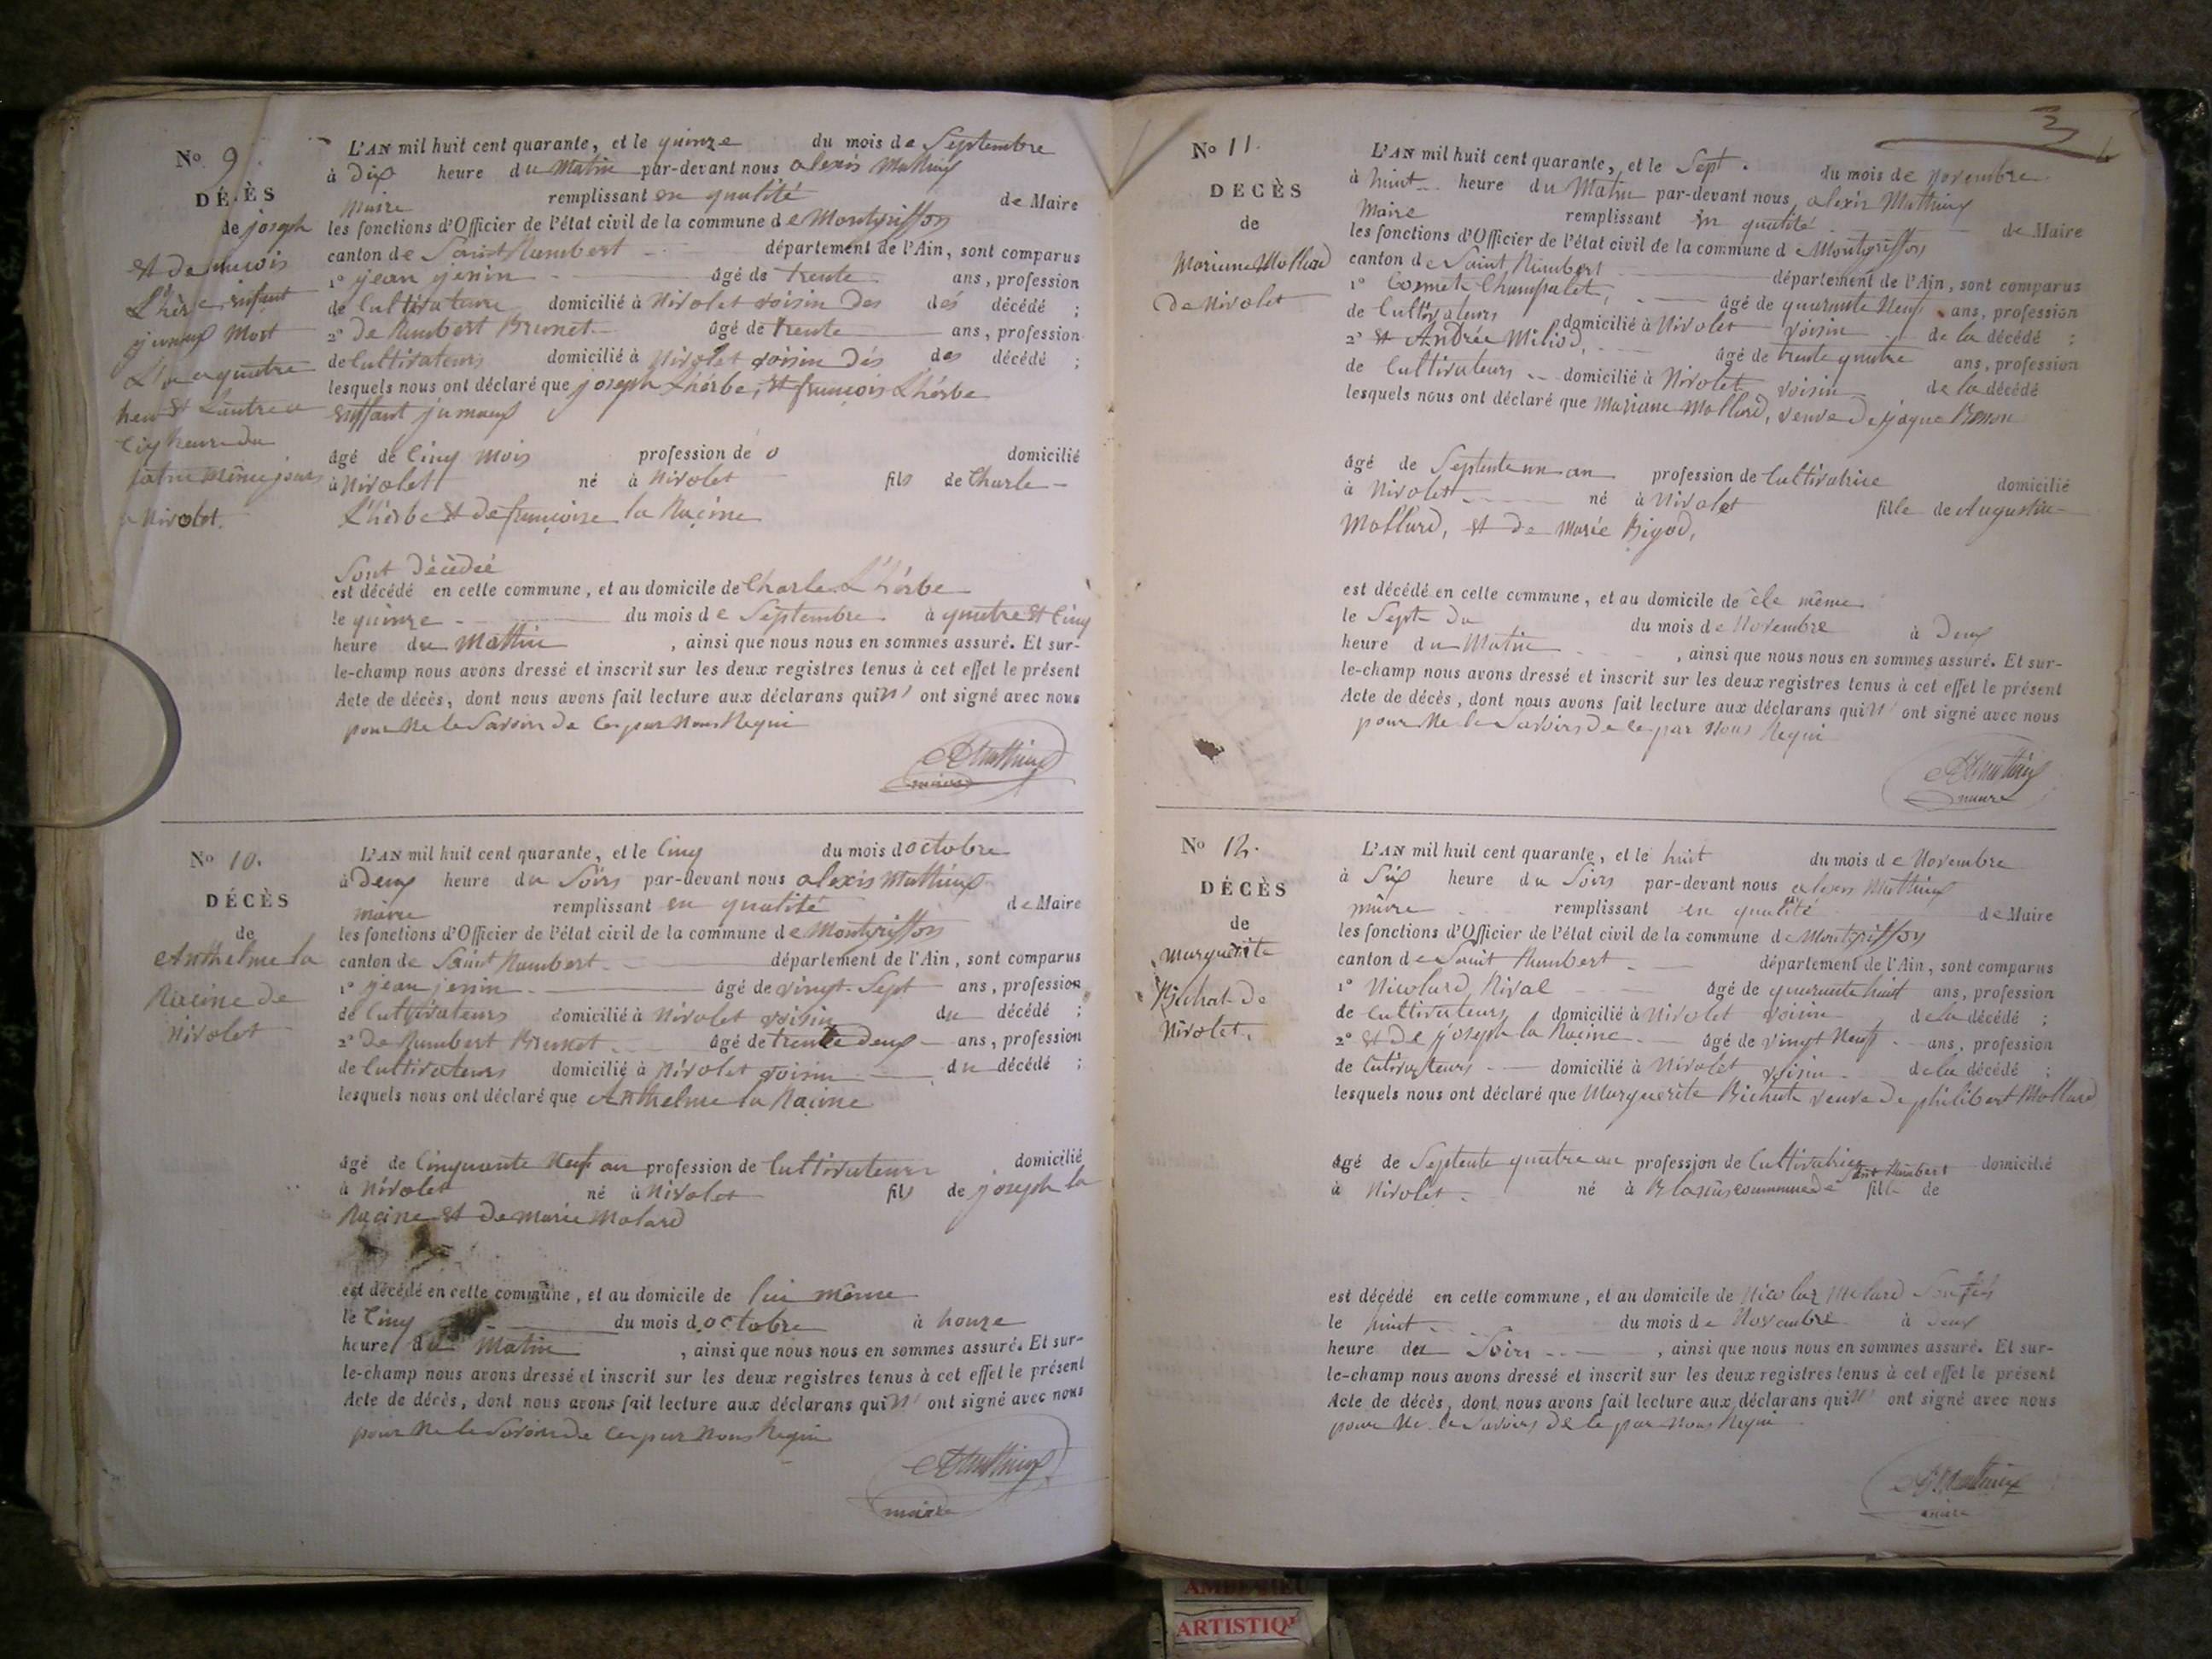 No 9.
DÉCÈS
de joseph
et de francois
L'hèrbe enfant
jumaux Mort
L'un a quatre
heur et L'autre a
Cinq heure du
matin même jours
a Nivolet.
L'AN mil huit cent quarante, et le quinze du mois de Septembre
à Dix heure du Matin par-devant nous alexis Mathieux
Maire remplissant en qualité de Maire
les fonctions d'Officier de l'état civil de la commune de Montgriffon
canton de Saint Rambert département de l'Ain, sont comparus
1° jean jenin âgé de trente ans, profession
de Cultivateur domicilié à Nivolet voisin des des décédé ;
2° de Rambert Brunet âgé de trente ans, profession
de Cultivateurs domicilié à Nivolet voisin dés des décédé ;
lesquels nous ont déclaré que joseph L'hérbe, et françois L'hérbe
enffant jumaux
âgé de Cinq Mois profession de o domicilié
à Nivolett né à Nivolet fils de Charle
L'hèrbe et de françoise la Racine
Sont décédée
est décédé en cette commune, et au domicile de Charle L'hérbe
le quinze du mois de Septembre à quatre et Cinq
heure du Mattin , ainsi que nous nous en sommes assuré. Et sur-
le-champ nous avons dressé et inscrit sur les deux registres tenus à cet effet le présent
Acte de décès, dont nous avons fait lecture aux déclarans qui N' ont signé avec nous
pour Ne le Savoir de Ce par Nous Requi
AMathieux
maire
No 10.
DÉCÈS
de
Anthelme la
Racine de
Nivolet
L'AN mil huit cent quarante, et le Cinq du mois d octobre
à Deux heure du Soirs par-devant nous alexis Mathieux
maire remplissant en qualité de Maire
les fonctions d'Officier de l'état civil de la commune de Montgriffon
canton de Saint Rambert département de l'Ain, sont comparus
1° jean jenin âgé de vingt Sept ans, profession
de Cultivateurs domicilié à Nivolet voisin du décédé ;
2° De Rambert Brunet âgé de trente deux ans, profession
de Cultivateurs domicilié à Nivolet voisin du décédé ;
lesquels nous ont déclaré que Anthelme la Racine
âgé de Cinquante Neuf an profession de Cultivateurs domicilié
à Nivolet né à Nivolet fils de joseph la
Racine et de marie Molard
est décédé en cette commune, et au domicile de lui même
le Cinq du mois d octobre à honze
heure du Matin , ainsi que nous nous en sommes assuré. Et sur-
le-champ nous avons dressé et inscrit sur les deux registres tenus à cet effet le présent
Acte de décès, dont nous avons fait lecture aux déclarans qui N' ont signé avec nous
pour Ne le Savoir de Ce par Nous Requi
AMathieux
maire
3
No 11.
DÉCÈS
de
Mariane Mollard
de Nivolet
L'AN mil huit cent quarante, et le Sept. du mois de Novembre
à huit heure du Matin par-devant nous, alexis Mathieux
Maire remplissant en qualité de Maire
les fonctions d'Officier de l'état civil de la commune de Montgriffon
canton de Saint Rambert département de l'Ain, sont comparus
1° Cosmete Champalet, âgé de quarante Neuf ans, profession
de Cultivateurs domicilié à Nivolet voisin de la décédé ;
2° et Andrée Miliod, âgé de trente quatre ans, profession
de Cultivateurs domicilié à Nivolet voisin de la décédé
lesquels nous ont déclaré que Mariane Mollard, veuve de jaque Besson
âgé de Septente un an profession de Cultivatrice domicilié
à Nivolet né à Nivolet fille de Augustin
Mollard, et de Marie Bigod,
est décédé en cette commune, et au domicile de éle même
le Sept du du mois de Novembre à Deux
heure du Matin , ainsi que nous nous en sommes assuré. Et sur-
le-champ nous avons dressé et inscrit sur les deux registres tenus à cet effet le présent
Acte de décès, dont nous avons fait lecture aux déclarans qui N' ont signé avec nous
pour Ne le Savoirs de Ce par Nous Requi
AMathieux
maire
No 12.
DÉCÈS
de
Marguerite
Bichat de
Nivolet.
L'AN mil huit cent quarante, et le huit du mois de Novembre
à Six heure du Soirs par-devant nous alexis Mathieux
maire remplissant en qualité de Maire
les fonctions d'Officier de l'état civil de la commune de Montgriffon
canton de Saint Rambert département de l'Ain, sont comparus
1° Nicolard, Rival âgé de quarante huit ans, profession
de Cultivateurs domicilié à Nivolet voisin de la décédé ;
2° et de joseph la Racine âgé de vingt Neuf ans, profession
de Cultivateurs domicilié à Nivolet voisin de la décédé ;
lesquels nous ont déclaré que Marguerite Bichate veuve de philibert Mollard
âgé de Septente quatre an profession de Cultivatrice domicilié
Saint Rambert
à Nivolet né à Blanas commune de fille de
est décédé en cette commune, et au domicile de Nicolaz Molard Son fils
le huit du mois de Novembre à Deux
heure du Soirs , ainsi que nous nous en sommes assuré. Et sur-
le-champ nous avons dressé et inscrit sur les deux registres tenus à cet effet le présent
Acte de décès, dont nous avons fait lecture aux déclarans qui N' ont signé avec nous
pour Ne le Savoirs de Ce par Nous Requi
AMathieux
maire
AMBERIEU
ARTISTIQ